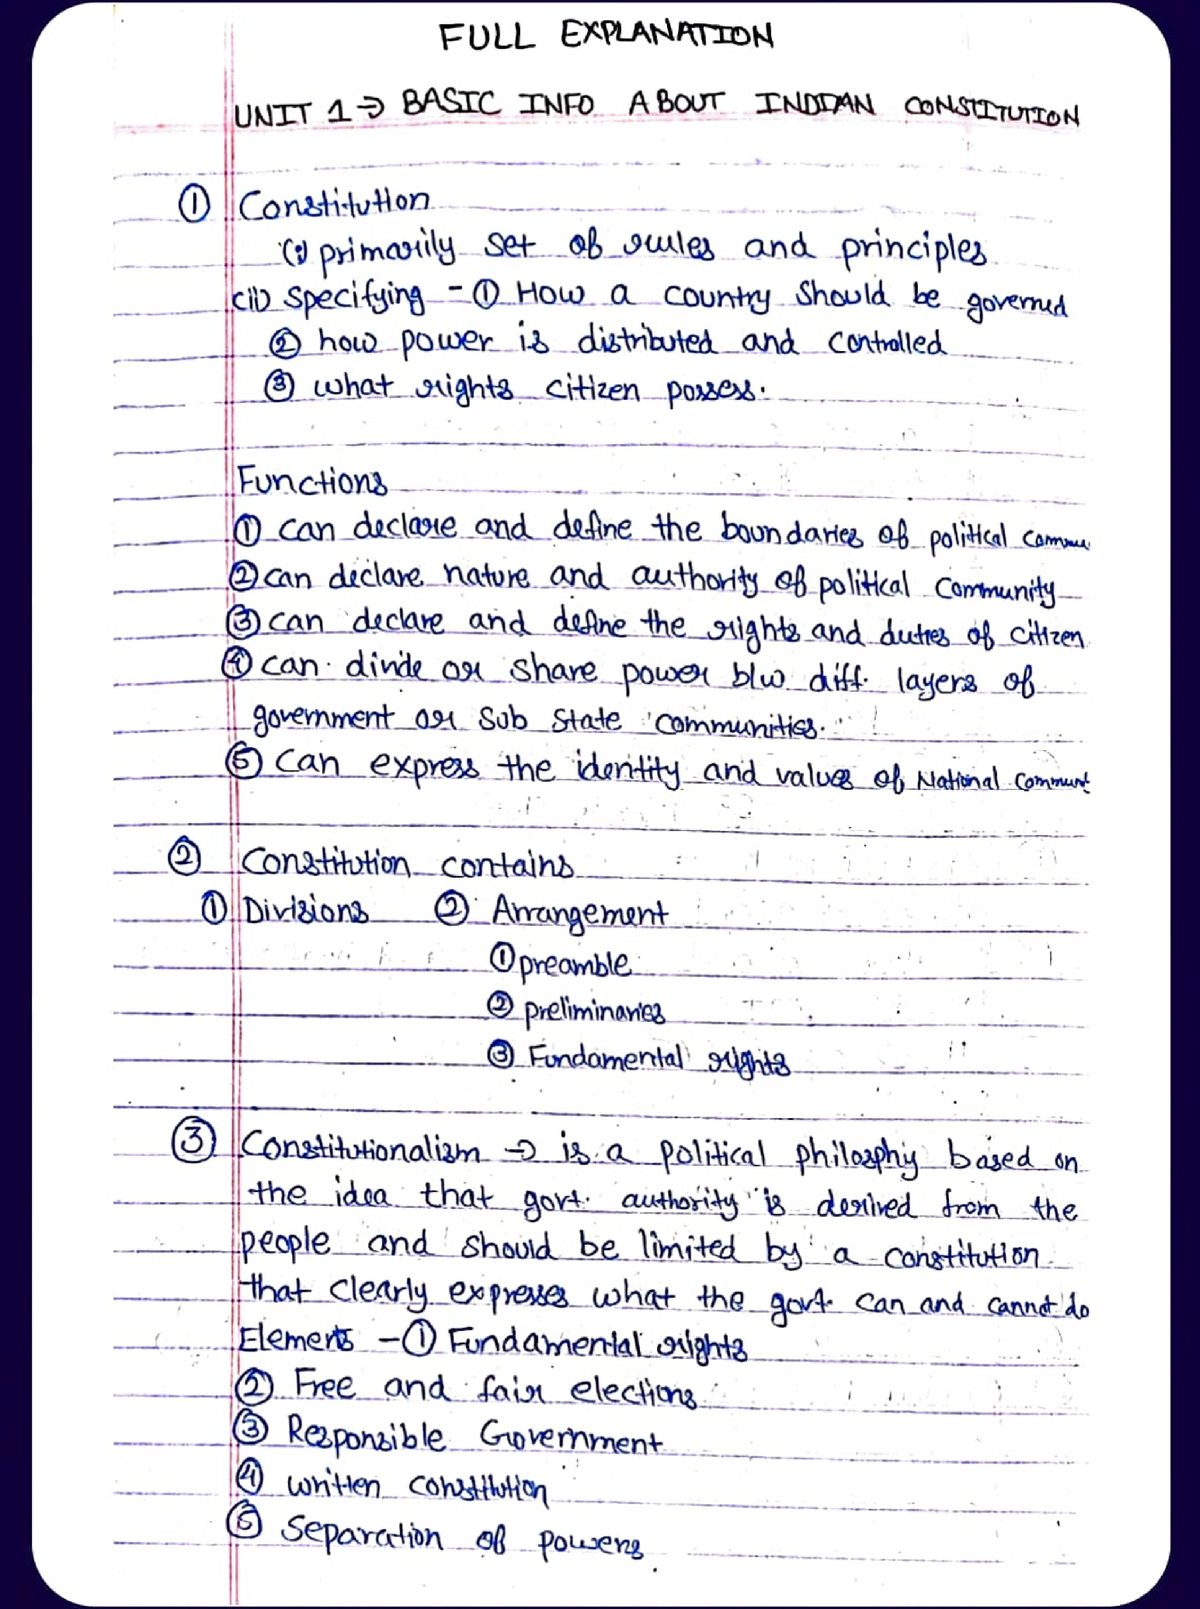 FULL EXPLANATION
UNIT 1 → BASIC INFO ABOUT INDIAN CONSTITUTION
① Constitution
(i) primarily set of rules and principles
(ii) Specifying - ① How a country should be governed
② how power is distributed and controlled
③ what rights citizen possess.
Functions
① can declare and define the boundaries of political commu
② can declare nature and authority of political community
③ can declare and define the rights and duties of citizen
④ can divide or share power b/w diff. layers of
government or sub state communities.
⑤ can express the identity and values of National communt
② Constitution contains
① Divisions ② Arrangement
① preamble
② preliminaries
③ Fundamental rights
③ Constitutionalism → is a political philosphiy based on
the idea that govt. authority is derived from the
people and should be limited by a constitution
that clearly expresses what the govt. can and cannot do
Elements - ① Fundamental rights
② Free and fair elections
③ Responsible Government
④ written constitution
⑤ Separation of powers